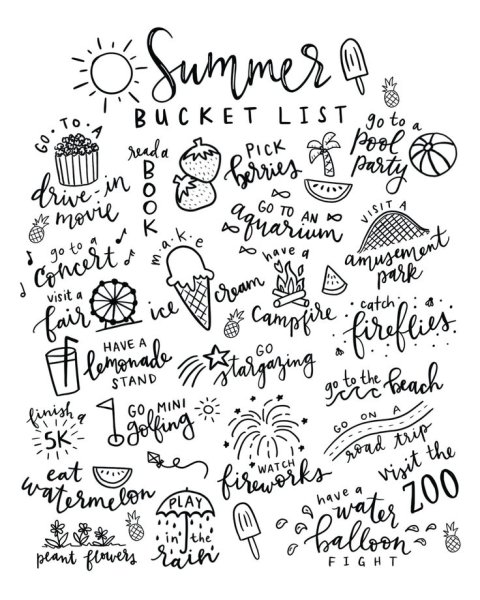 Summer
BUCKET LIST
GO TO A
drive-in
movie
read a
BOOK
PICK
berries
go to a
pool
party
GO TO AN
aquarium
VISIT A
amusement
park
go to a
concert
make
ice cream
have a
campfire
visit a
fair
catch
fireflies
HAVE A
lemonade
STAND
GO
stargazing
go to the beach
finish a
5K
GO MINI
golfing
WATCH
fireworks
GO ON A
road trip
eat
watermelon
visit the
ZOO
plant flowers
PLAY
in the
rain
have a
water
balloon
FIGHT